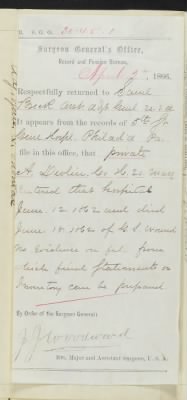 S.G.O.
Surgeon General's Office,
Record and Pension Bureau,
April 9", 1866.
Respectfully returned to Saml
Breck Asst Adjt Genl U.S.A
It appears from the records of 5th St.
Genl Hospl. Philad'a Pa.
file in this office, that private
A. Devlin, Co. H. 28 Mass
entered that hospital
June 12 1862 and died
June 18, 1862 of G.S. Wound
no evidence on file from
which final Statements or
Inventory can be prepared
By Order of the Surgeon General:
J.J. Woodward
Bvt. Major and Assistant Surgeon, U. S. A.